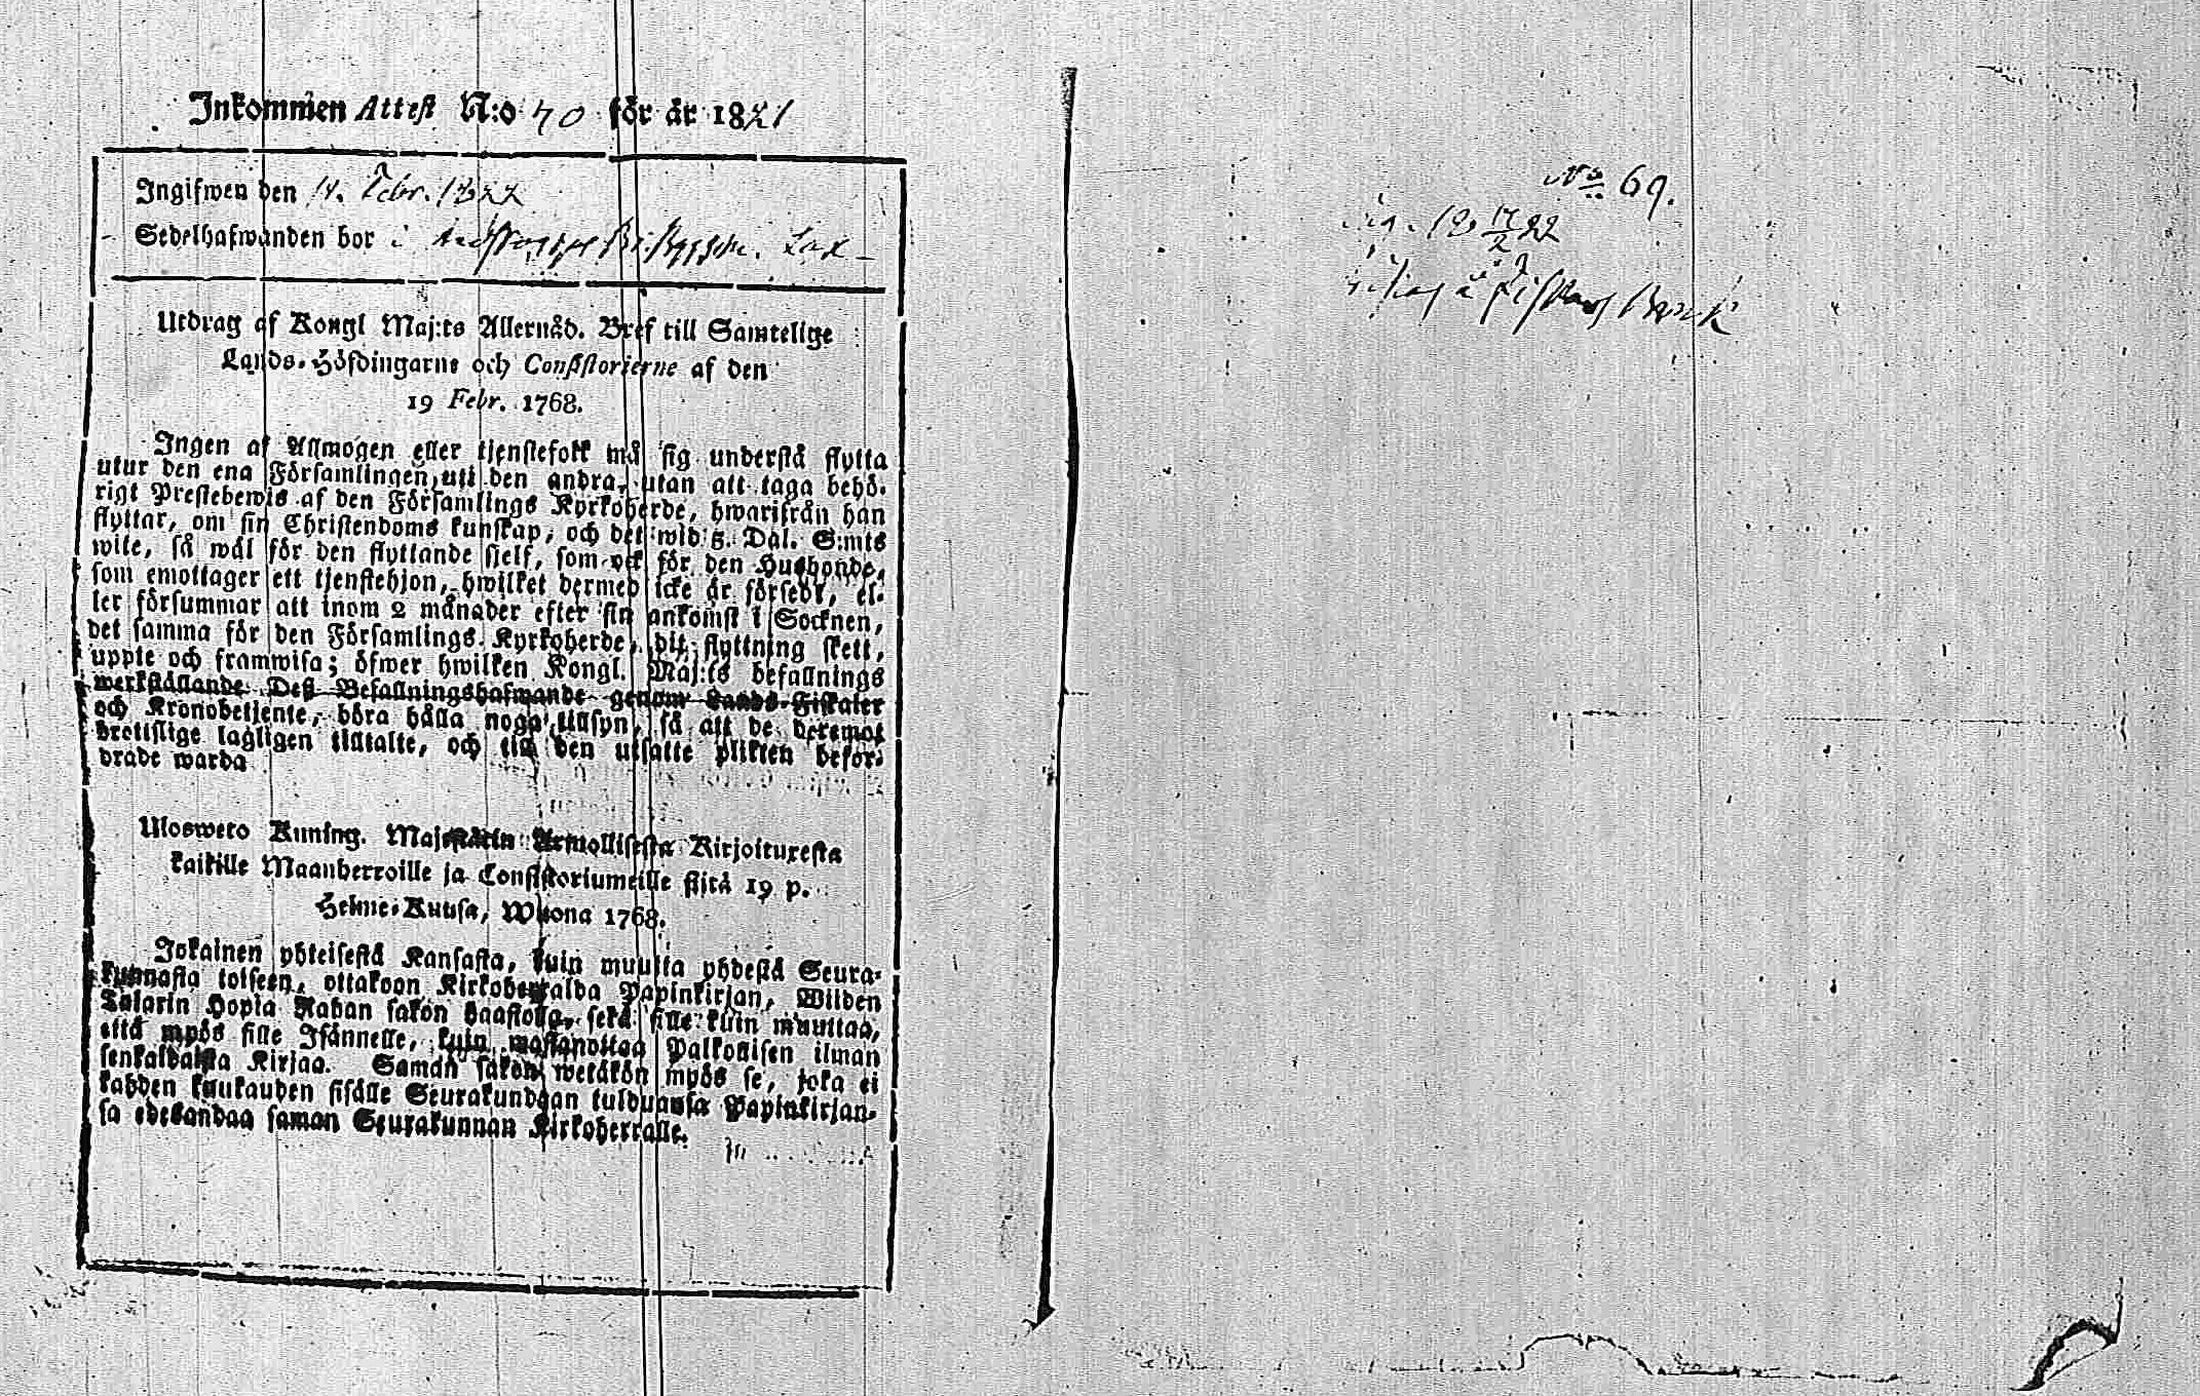 Inkommen Attest N:o 40 för år 1821
Ingifwen den 14. Febr. 1822
Sedelhafwanden bor i
Utdrag af Kongl Maj:ts Allernåd. Bref till Samtelige
Lands-Höfdingarne och Consistorierne af den
19 Febr. 1768.
Ingen af Allmogen eller tjenstefolk må sig understå flytta
utur den ena Församlingen uti den andra, utan att taga behö-
rigt Prestebewis af den Församlings Kyrkoherde, hwarifrån han
flyttar, om sin Christendoms kunskap, och det wid 5. Dal. S:mts
wite, så wäl för den flyttande sjelf, som ock för den Husbonde,
som emottager ett tjenstehjon, hwilket dermed icke är försedt, el-
ler försummar att inom 2 månader efter sin ankomst i Socknen,
det samma för den Församlings Kyrkoherde, dit flyttning skett,
uppte och framwisa; öfwer hwilken Kongl. Maj:ts befallnings
werkställande Dess Befallningshafwande genom Lands-Fiskaler
och Kronobetjente, böra hålla noga tillsyn, så att de deremot
brottslige lagligen tilltalte, och till den utsatte plikten befor-
drade warda
Ulosweto Kuning. Majestätin Armollisesta Kirjoituxesta
kaikille Maanherroille ja Consistoriumeille siitä 19 p.
Helme-Kuusa, Wuona 1768.
Jokainen yhteisestä Kansasta, kuin muutta yhdestä Seura-
kunnasta toiseen, ottakoon Kirkoherralda Papinkirjan, Wiiden
Talarin Hopia Rahan sakon haastolla, sekä sille kuin muuttaa,
että myös sille Isännelle, kuin wastanottaa Palkollisen ilman
senkaldaista Kirjaa. Samän sakon wetäkön myös se, joka ei
kahden kuukauden sisälle Seurakundaan tulduansa Papinkirjan-
sa edesandaa saman Seurakunnan Kirkoherralle.
No 69.
18 14/2 22
å Fiskars Bruk